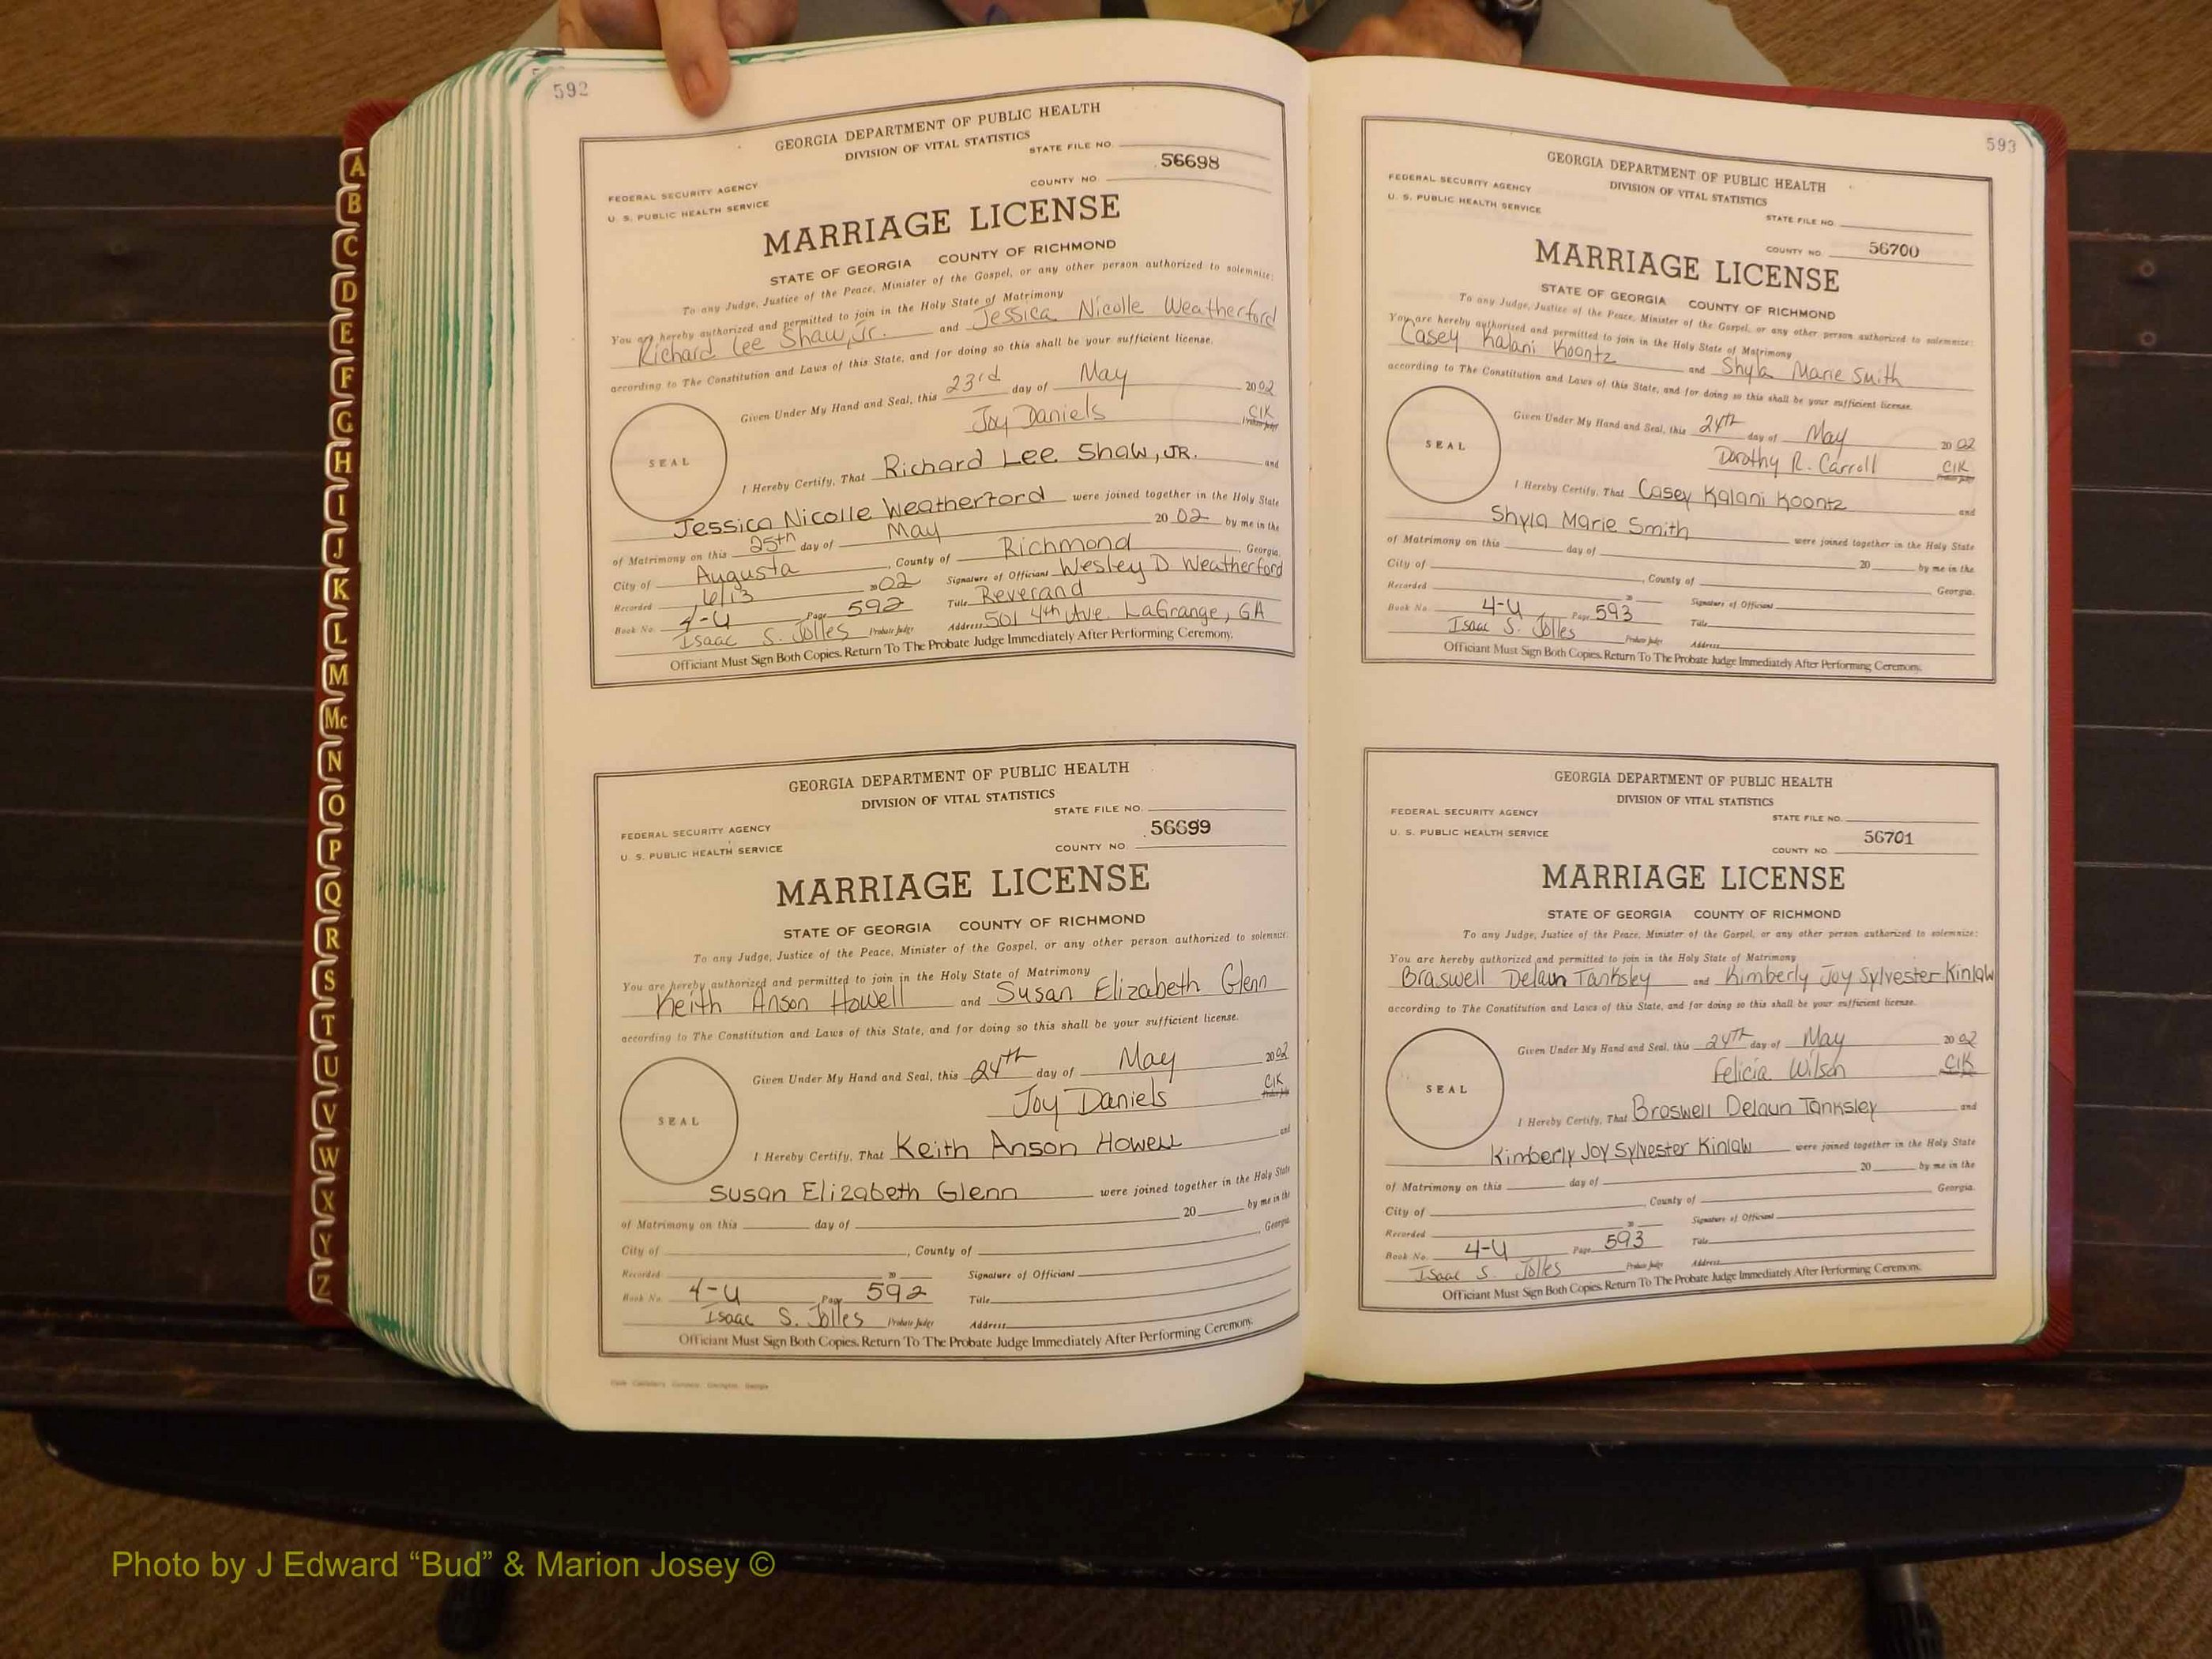 592
GEORGIA DEPARTMENT OF PUBLIC HEALTH
DIVISION OF VITAL STATISTICS
STATE FILE NO.
56698
FEDERAL SECURITY AGENCY
U. S. PUBLIC HEALTH SERVICE
COUNTY NO.
MARRIAGE LICENSE
STATE OF GEORGIA COUNTY OF RICHMOND
To any Judge, Justice of the Peace, Minister of the Gospel, or any other person authorized to solemnize:
You are hereby authorized and permitted to join in the Holy State of Matrimony
Richard Lee Shaw, Jr. and Jessica Nicolle Weatherford
according to The Constitution and Laws of this State, and for doing so this shall be your sufficient license.
Given Under My Hand and Seal, this 23rd day of May 2002
Joy Daniels Clk
Probate Judge
SEAL
I Hereby Certify, That Richard Lee Shaw, JR. and
Jessica Nicolle Weatherford were joined together in the Holy State
of Matrimony on this 25th day of May 20 02 by me in the
City of Augusta, County of Richmond, Georgia.
Recorded 6/13 20 02 Signature of Official Wesley D Weatherford
Book No. 4-U Page 592 Title Reverand
Isaac S. Jolles Probate Judge Address 501 4th Ave. LaGrange, GA
Officiant Must Sign Both Copies. Return To The Probate Judge Immediately After Performing Ceremony.
GEORGIA DEPARTMENT OF PUBLIC HEALTH
DIVISION OF VITAL STATISTICS
STATE FILE NO.
56699
FEDERAL SECURITY AGENCY
U. S. PUBLIC HEALTH SERVICE
COUNTY NO.
MARRIAGE LICENSE
STATE OF GEORGIA COUNTY OF RICHMOND
To any Judge, Justice of the Peace, Minister of the Gospel, or any other person authorized to solemnize:
You are hereby authorized and permitted to join in the Holy State of Matrimony
Keith Anson Howell and Susan Elizabeth Glenn
according to The Constitution and Laws of this State, and for doing so this shall be your sufficient license.
Given Under My Hand and Seal, this 24th day of May 2002
Joy Daniels Clk
Probate Judge
SEAL
I Hereby Certify, That Keith Anson Howell and
Susan Elizabeth Glenn were joined together in the Holy State
of Matrimony on this day of 20 by me in the
City of , County of , Georgia.
Recorded 20 Signature of Official
Book No. 4-U Page 592 Title
Isaac S. Jolles Probate Judge Address
Officiant Must Sign Both Copies. Return To The Probate Judge Immediately After Performing Ceremony.
593
GEORGIA DEPARTMENT OF PUBLIC HEALTH
DIVISION OF VITAL STATISTICS
FEDERAL SECURITY AGENCY
U. S. PUBLIC HEALTH SERVICE
STATE FILE NO.
COUNTY NO. 56700
MARRIAGE LICENSE
STATE OF GEORGIA COUNTY OF RICHMOND
To any Judge, Justice of the Peace, Minister of the Gospel, or any other person authorized to solemnize:
You are hereby authorized and permitted to join in the Holy State of Matrimony
Casey Kalani Koontz and Shyla Marie Smith
according to The Constitution and Laws of this State, and for doing so this shall be your sufficient license.
Given Under My Hand and Seal, this 24th day of May 20 02
Dorothy R. Carroll Clk
Probate Judge
SEAL
I Hereby Certify, That Casey Kalani Koontz and
Shyla Marie Smith were joined together in the Holy State
of Matrimony on this day of 20 by me in the
City of , County of Georgia.
Recorded 20 Signature of Official
Book No. 4-U Page 593 Title
Isaac S. Jolles Probate Judge Address
Officiant Must Sign Both Copies. Return To The Probate Judge Immediately After Performing Ceremony.
GEORGIA DEPARTMENT OF PUBLIC HEALTH
DIVISION OF VITAL STATISTICS
FEDERAL SECURITY AGENCY
STATE FILE NO.
U. S. PUBLIC HEALTH SERVICE
56701
COUNTY NO.
MARRIAGE LICENSE
STATE OF GEORGIA COUNTY OF RICHMOND
To any Judge, Justice of the Peace, Minister of the Gospel, or any other person authorized to solemnize:
You are hereby authorized and permitted to join in the Holy State of Matrimony
Braswell Delaun Tanksley and Kimberly Joy Sylvester Kinlaw
according to The Constitution and Laws of this State, and for doing so this shall be your sufficient license.
Given Under My Hand and Seal, this 24th day of May 20 02
Felicia Wilson Clk
SEAL
I Hereby Certify, That Braswell Delaun Tanksley and
Kimberly Joy Sylvester Kinlaw were joined together in the Holy State
of Matrimony on this day of 20 by me in the
City of , County of Georgia.
Recorded 20 Signature of Official
Book No. 4-U Page 593 Title
Isaac S. Jolles Probate Judge Address
Officiant Must Sign Both Copies. Return To The Probate Judge Immediately After Performing Ceremony.
A
B
C
D
E
F
G
H
I
J
K
L
M
Mc
N
O
P
Q
R
S
T
U
V
W
X
Y
Z
Photo by J Edward “Bud” & Marion Josey ©